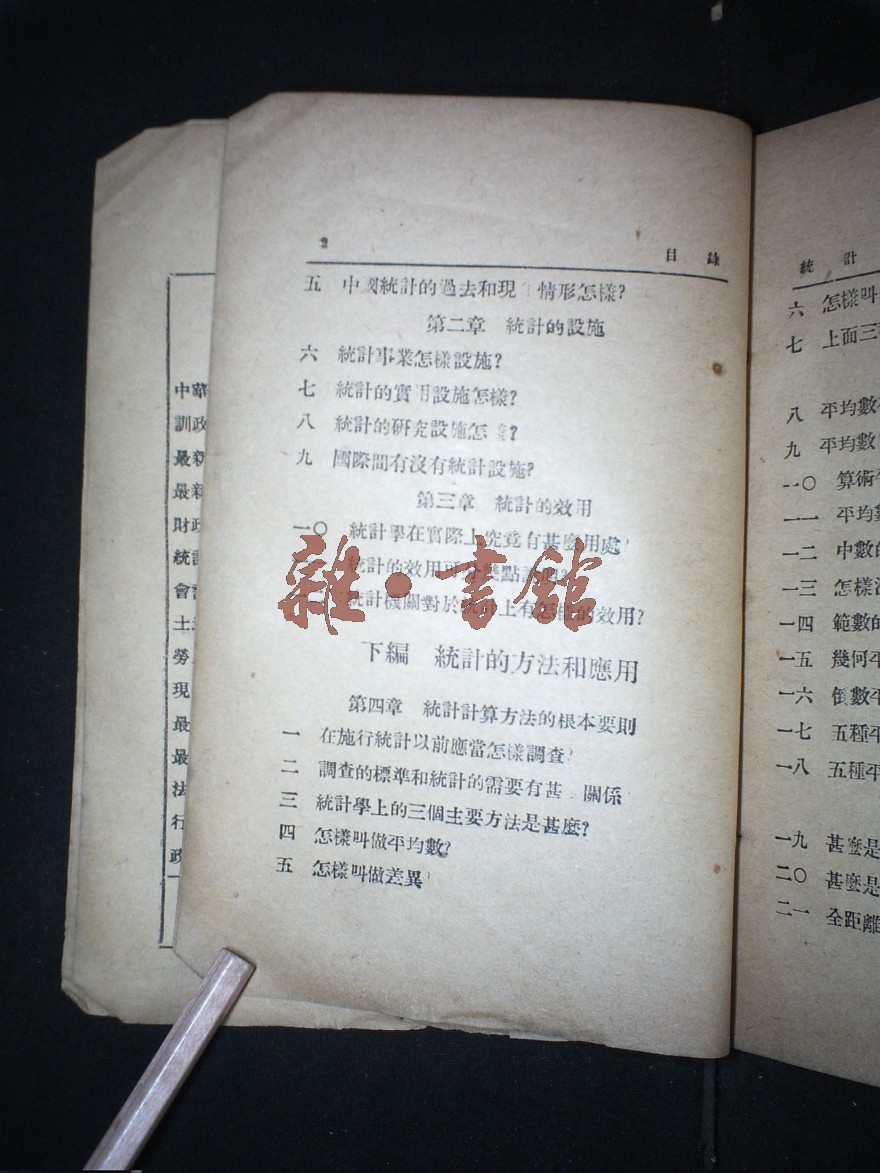 2 目錄
五 中國統計的過去和現 情形怎樣?
第二章 統計的設施
六 統計事業怎樣設施?
七 統計的實用設施怎樣?
八 統計的研究設施怎 ?
九 國際間有沒有統計設施?
第三章 統計的效用
一〇 統計學在實際上究竟有甚麼用處?
統計的效用可分幾點
統計機關對於統計上有怎樣的效用?
下編 統計的方法和應用
第四章 統計計算方法的根本要則
一 在施行統計以前應當怎樣調查?
二 調查的標準和統計的需要有甚 關係
三 統計學上的三個主要方法是甚麼?
四 怎樣叫做平均數?
五 怎樣叫做差異?
雜·書館
中華
訓政
最新
最新
財政
統計
會
土
勞
現
最
最
法
行
政
統計
六 怎樣叫
七 上面三
八 平均數
九 平均數
一〇 算術平
一一 平均數
一二 中數的
一三 怎樣
一四 範數的
一五 幾何平
一六 倒數平
一七 五種平
一八 五種平
一九 甚麼是
二〇 甚麼是
二一 全距離